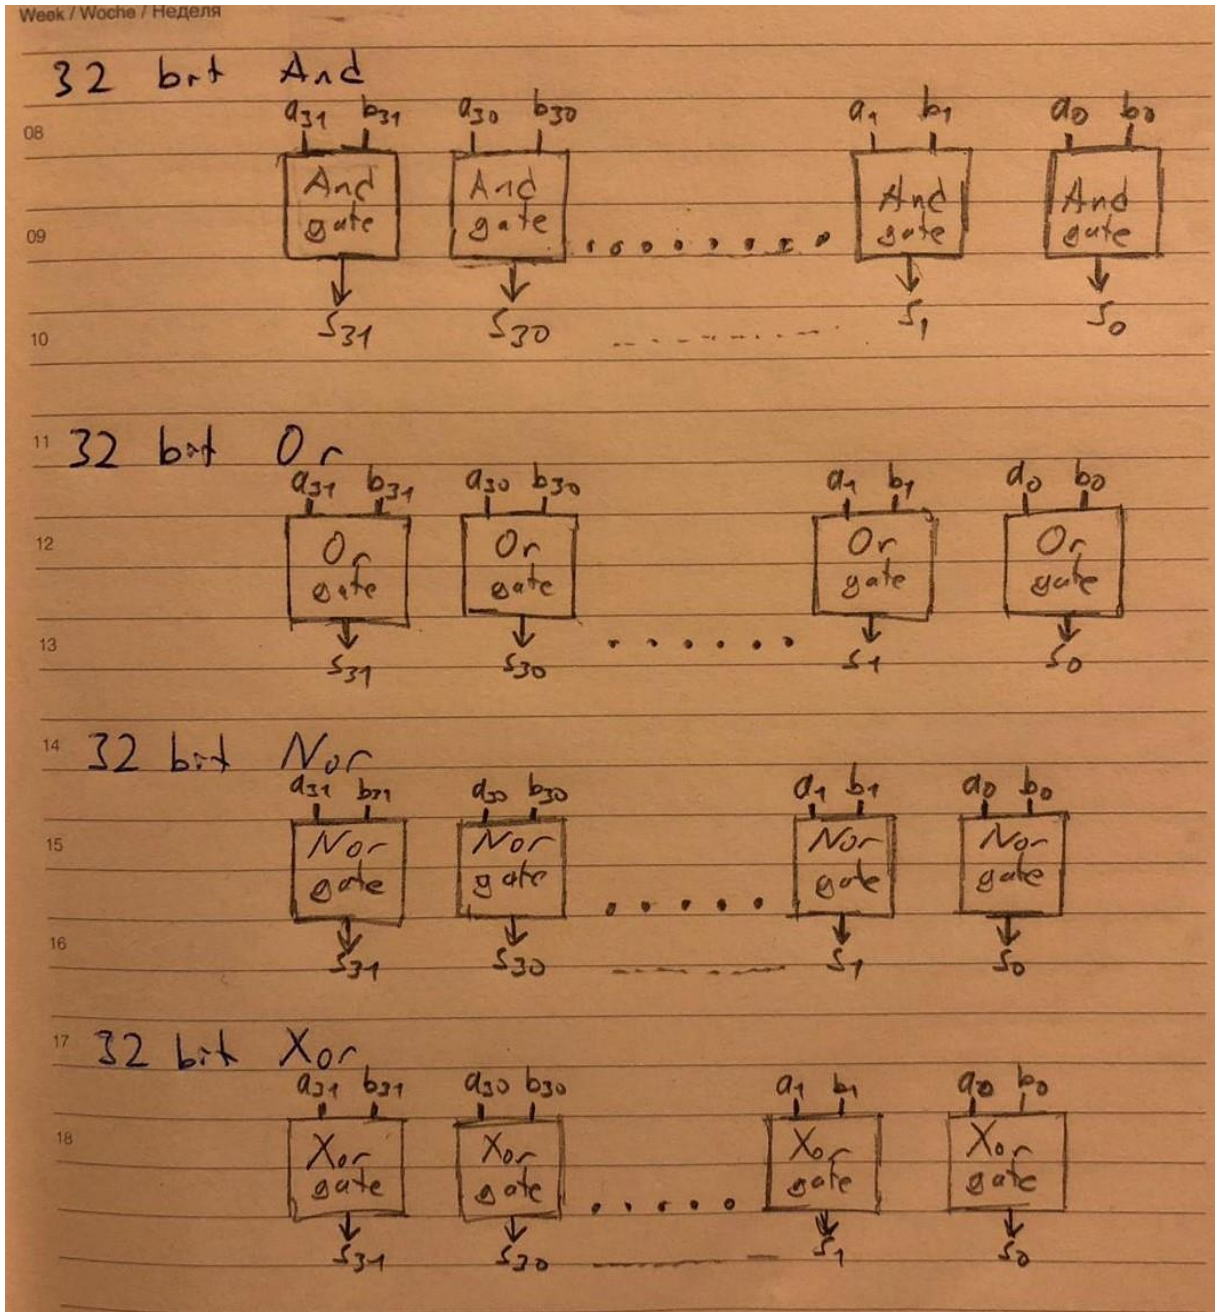 Week / Woche / Неделя
32 bit And
a31 b31 a30 b30 a1 b1 a0 b0
08
And And And And
gate gate gate gate
09
S31 S30 S1 S0
10
11 32 bit Or
a31 b31 a30 b30 a1 b1 a0 b0
12 Or Or Or Or
gate gate gate gate
13
S31 S30 S1 S0
14 32 bit Nor
a31 b31 a30 b30 a1 b1 a0 b0
15 Nor Nor Nor Nor
gate gate gate gate
16
S31 S30 S1 S0
17 32 bit Xor
a31 b31 a30 b30 a1 b1 a0 b0
18 Xor Xor Xor Xor
gate gate gate gate
S31 S30 S1 S0